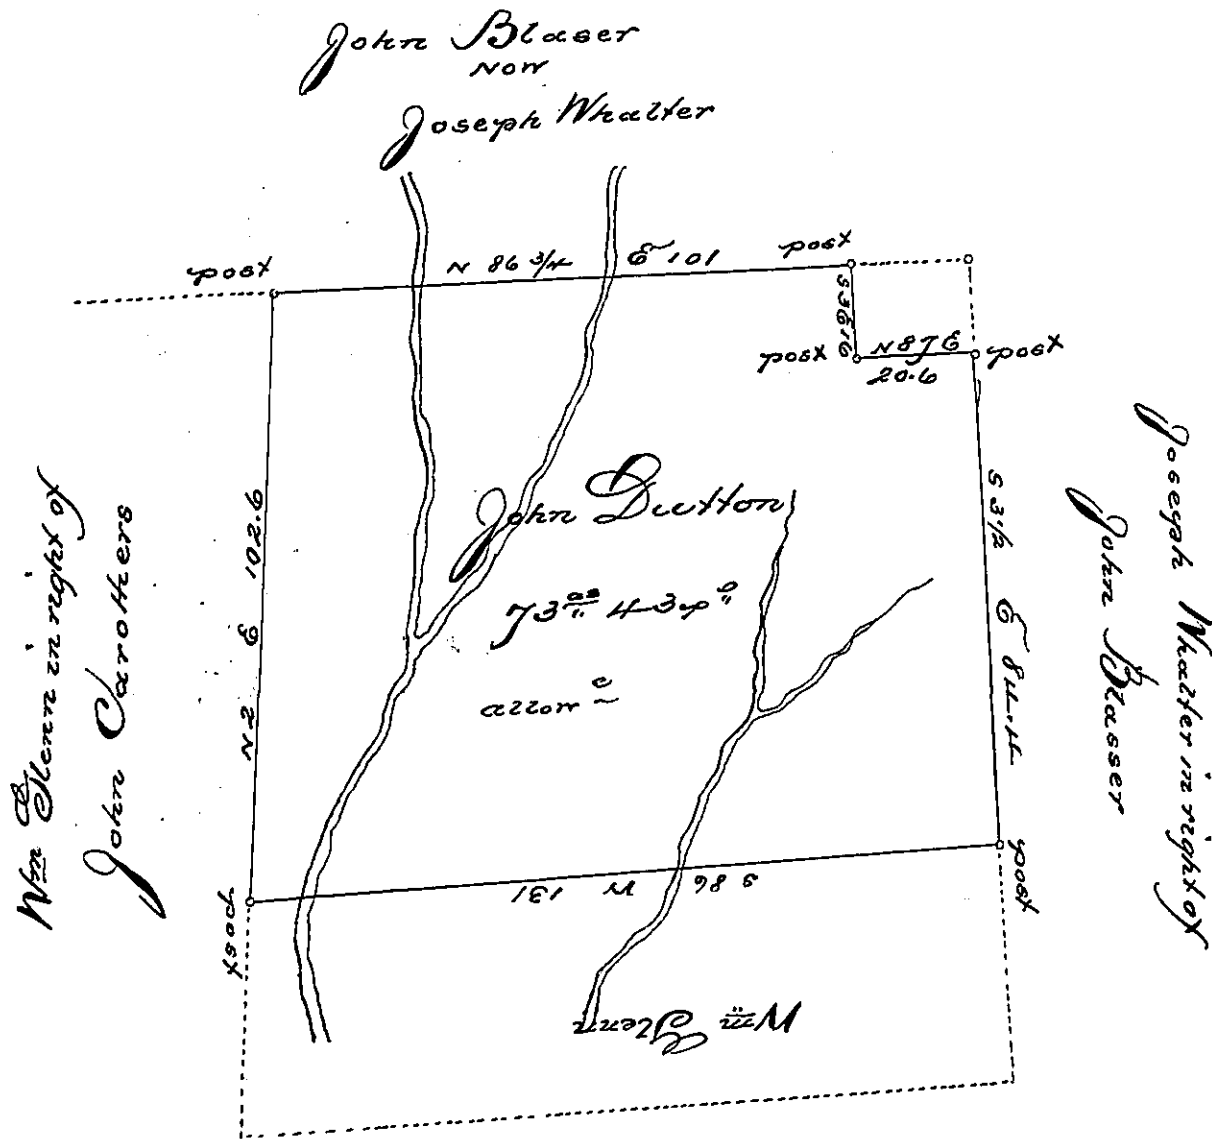 John Blaser
now
Joseph Whalter
post
N 86 3/4 E 101
post
S 3 E 16
post
N 87 E
20.6
post
Wm Glenn in right of
John Carothers
N 2 E 102.6
John Dutton
73 as 43 ps
allowce
S 3 1/2 E 84.4
Joseph Whalter in right of
John Blasser
post
S 86 W 131
post
Wm Glenn